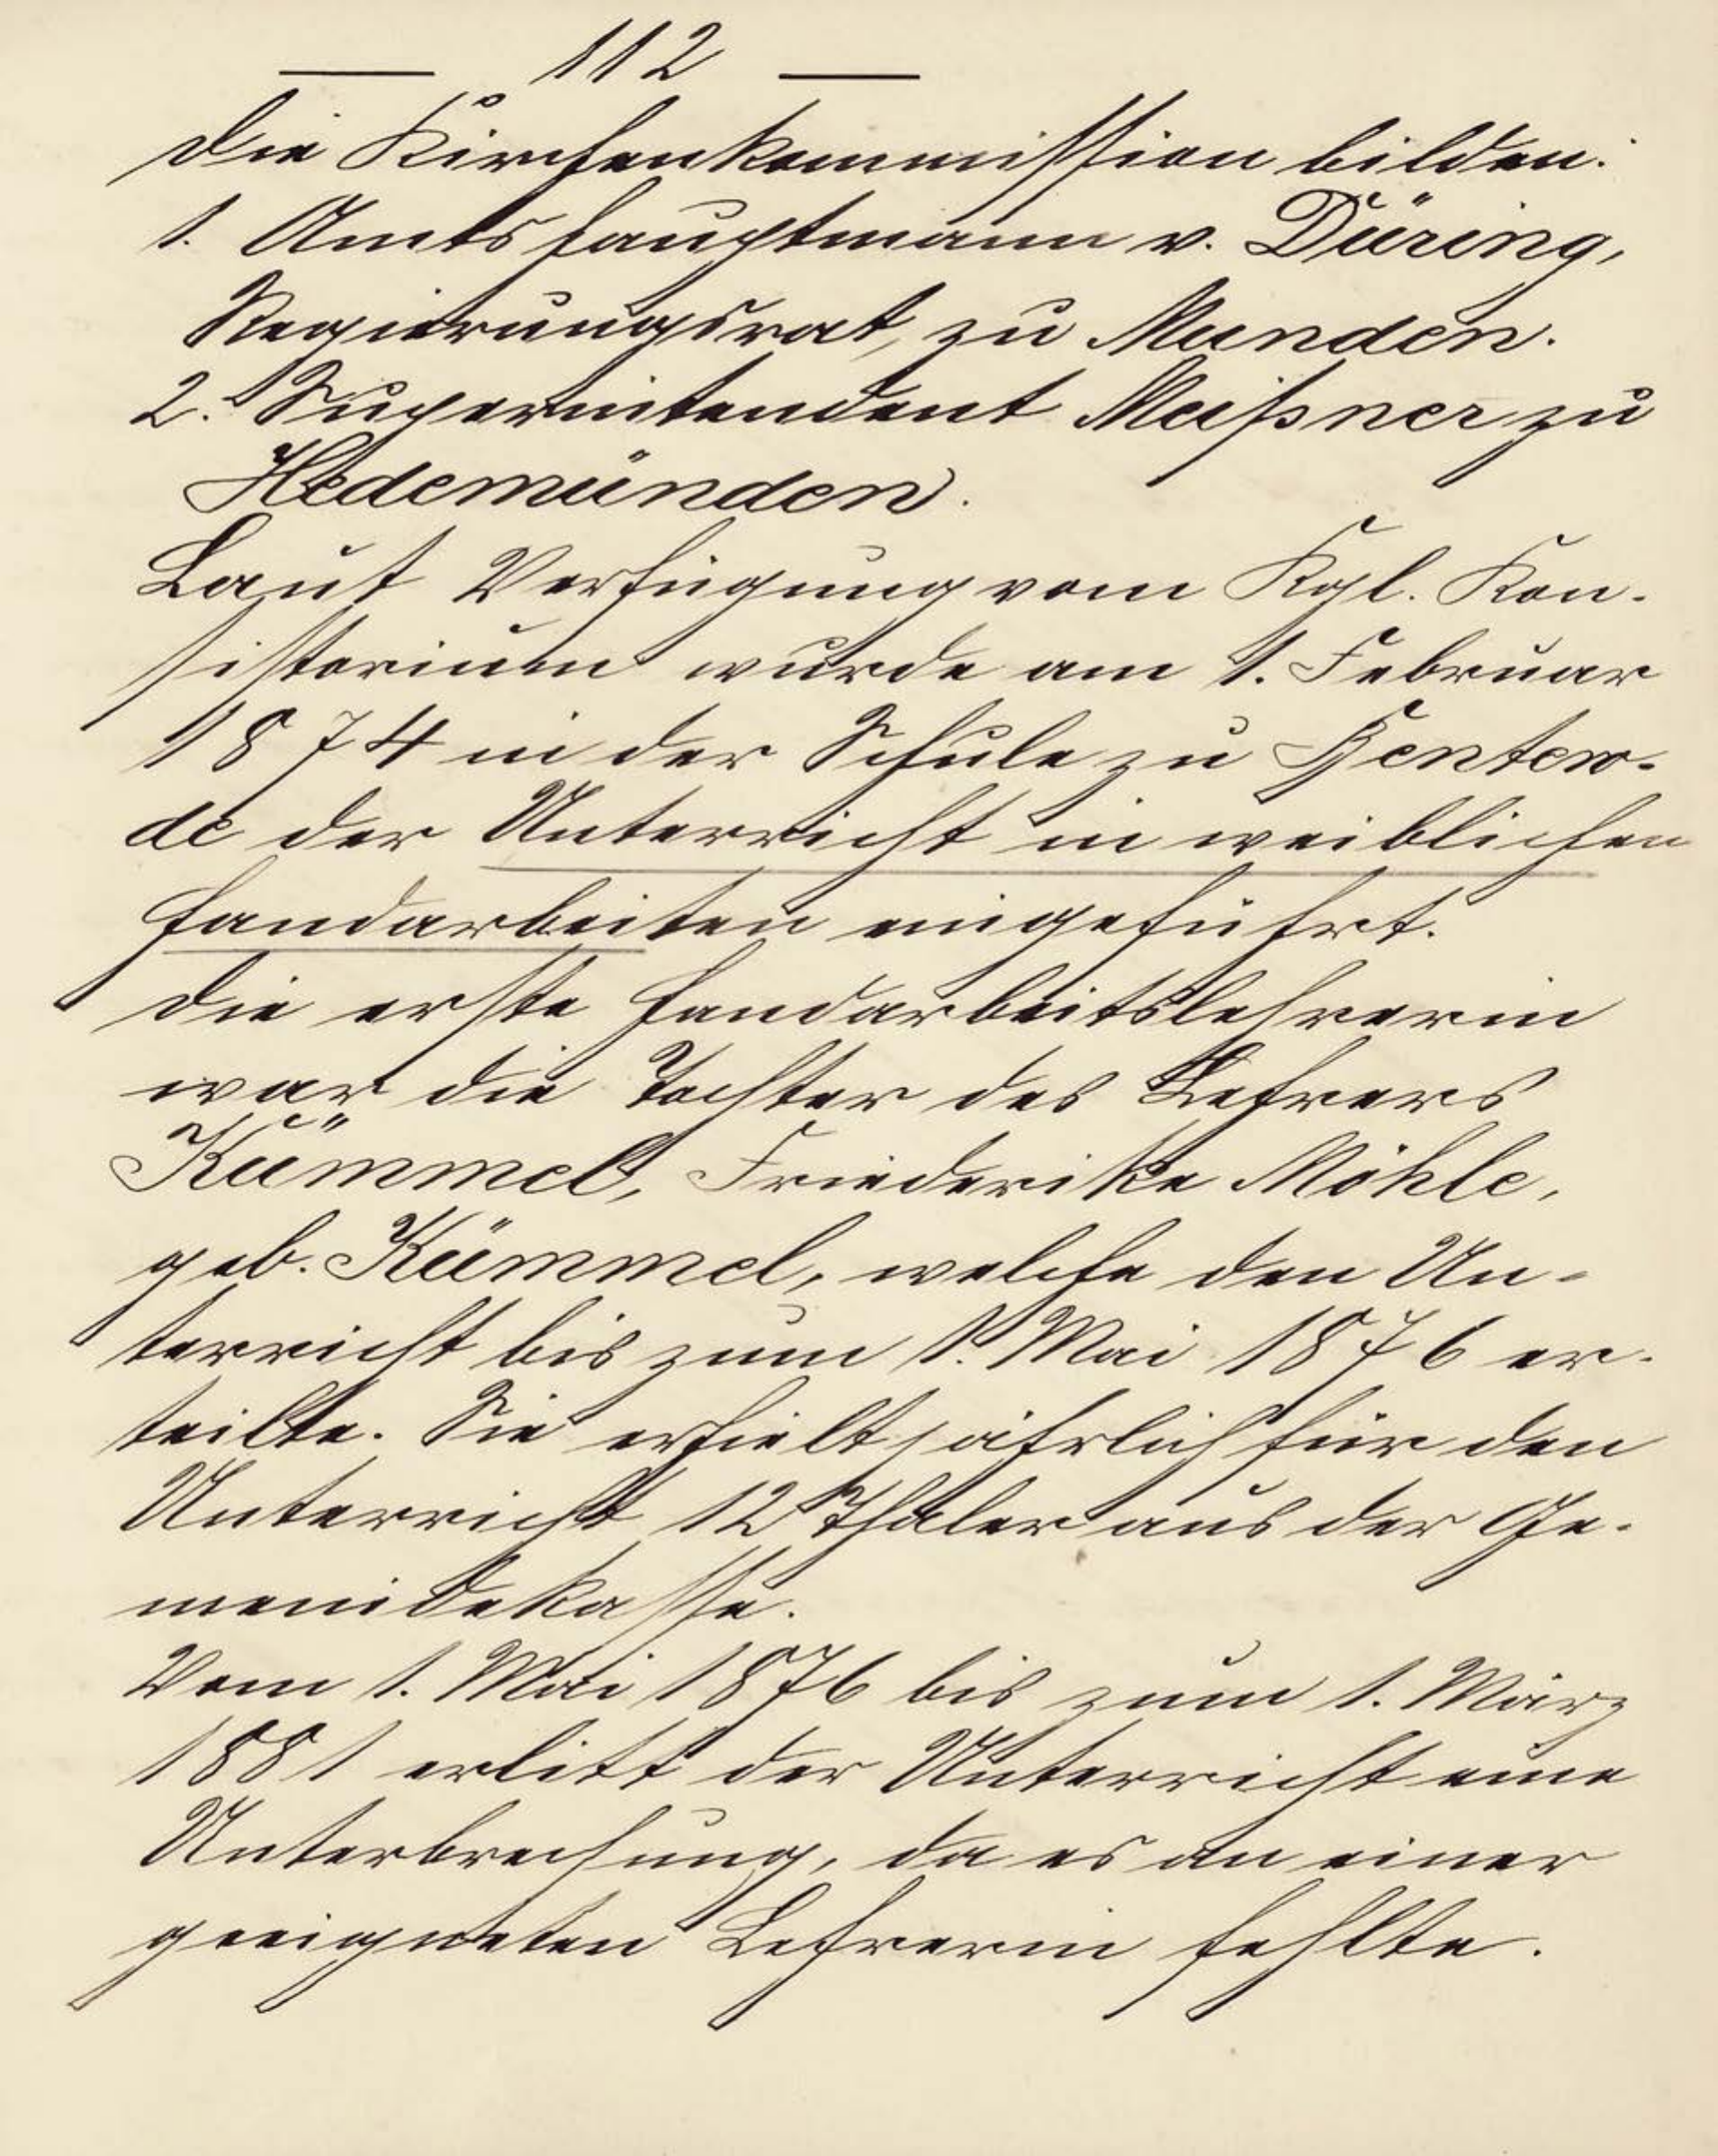 112
Die Kirchenkommission bilden:
1. Amtshauptmann v. Düring,
Regierungsrat, zu Munden.
2. Superintendent Meißner zu
Hedemünden.
Laut Verfügung vom Kgl. Kon-
sistorium wurde am 1. Februar
1874 in der Schule zu Gentero-
de der Unterricht in weiblichen
Handarbeiten eingeführt.
Die erste Handarbeitslehrerin
war die Tochter des Lehrers
Kümmel, Friederike Möhle,
geb. Kümmel, welche den Un-
terricht bis zum 1. Mai 1876 er-
teilte. Sie erhielt jährlich für den
Unterricht 12 Thaler aus der Ge-
meindekasse.
Vom 1. Mai 1876 bis zum 1. März
1881 erlitt der Unterricht eine
Unterbrechung, da es an einer
geeigneten Lehrerin fehlte.